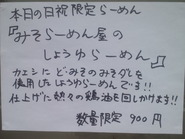 本日の日祝限定らーめん
『みそらーめん屋の
しょうゆらーめん』
カエシに ど・みその みそダレを
使用したしょうゆらーめんです!!
仕上げに熱々の鶏油を回しかけます!!
数量限定 900円